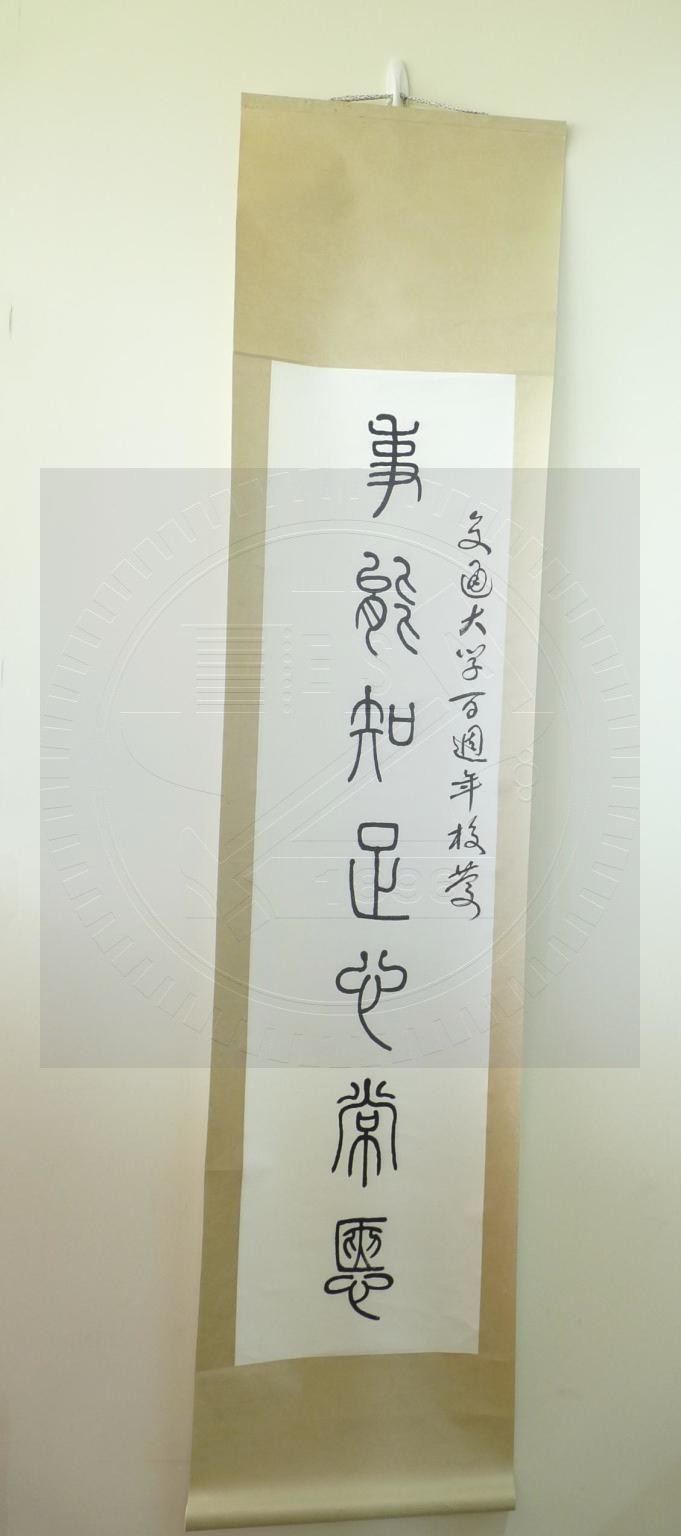 交通大学百週年校慶
事能知足心常愜